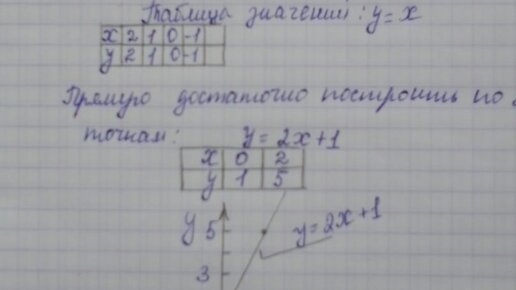 Таблица значений: y = x
x 2 1 0 -1
y 2 1 0 -1
Прямую достаточно построить по
точкам: y = 2x+1
x 0 2
y 1 5
y 5 y = 2x+1
3